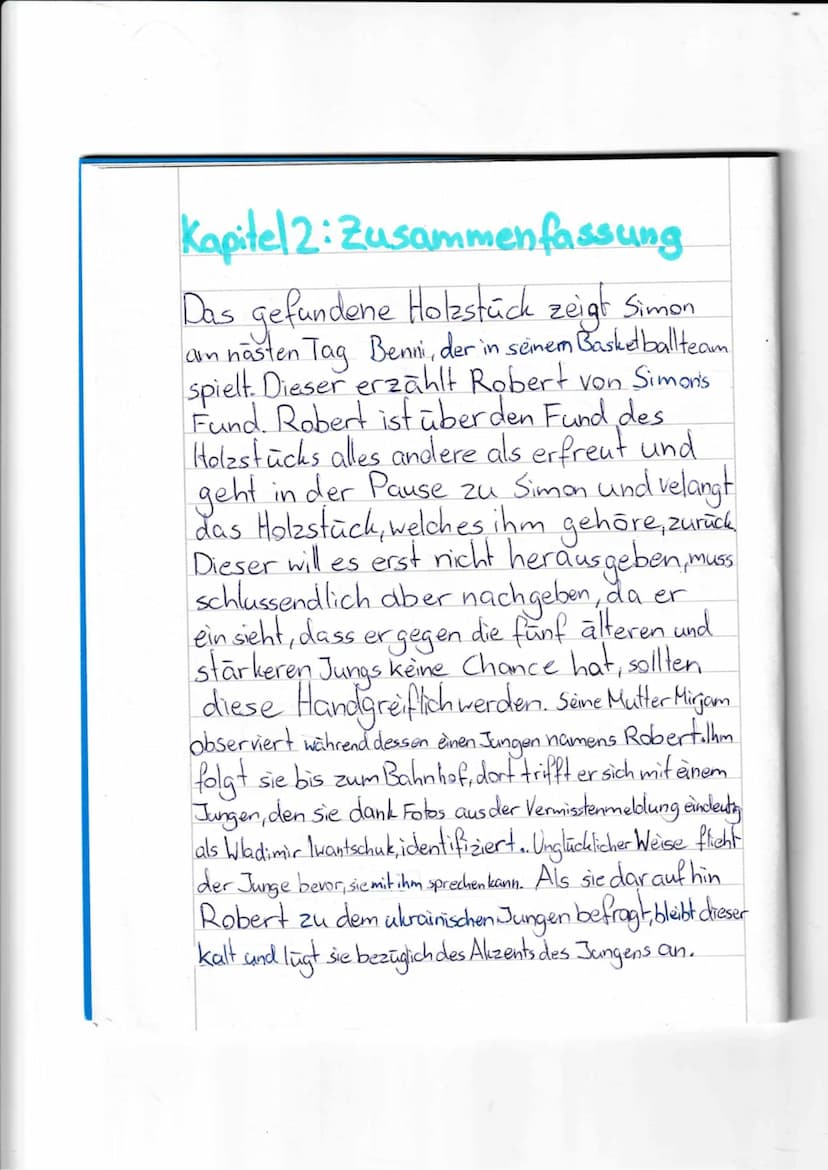 Kapitel 2: Zusammenfassung
Das gefundene Holzstück zeigt Simon
am nästen Tag Benni, der in seinem Basketballteam
spielt. Dieser erzählt Robert von Simon's
Fund. Robert ist über den Fund des
Holzstücks alles andere als erfreut und
geht in der Pause zu Simon und velangt
das Holzstück, welches ihm gehöre, zurück.
Dieser will es erst nicht herausgeben, muss
schlussendlich aber nachgeben, da er
ein sieht, dass er gegen die fünf älteren und
stärkeren Jungs keine Chance hat, sollten
diese Handgreiflich werden. Seine Mutter Mirjam
observiert während dessen einen Jungen namens Robert. Ihm
folgt sie bis zum Bahnhof, dort trifft er sich mit einem
Jungen, den sie dank Fotos aus der Vermisstenmeldung eindeutig
als Wladimir Iwantschuk, identifiziert.. Unglücklicher Weise flieht
der Junge bevor, sie mit ihm sprechen kann. Als sie dar auf hin
Robert zu dem ukrainischen Jungen befragt, bleibt dieser
kalt und lügt sie bezüglich des Akzents des Jungens an.